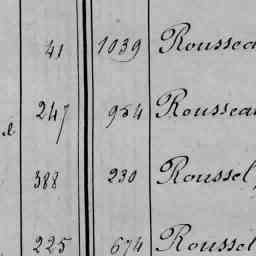 41 1039 Roussea
247 954 Roussea
388 230 Roussel,
225 674 Roussel